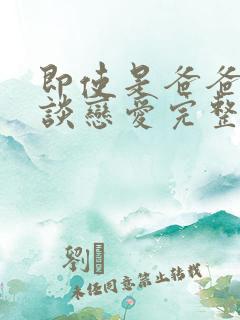 即使是爸爸
談戀愛完整
劉
未经同意禁止转载